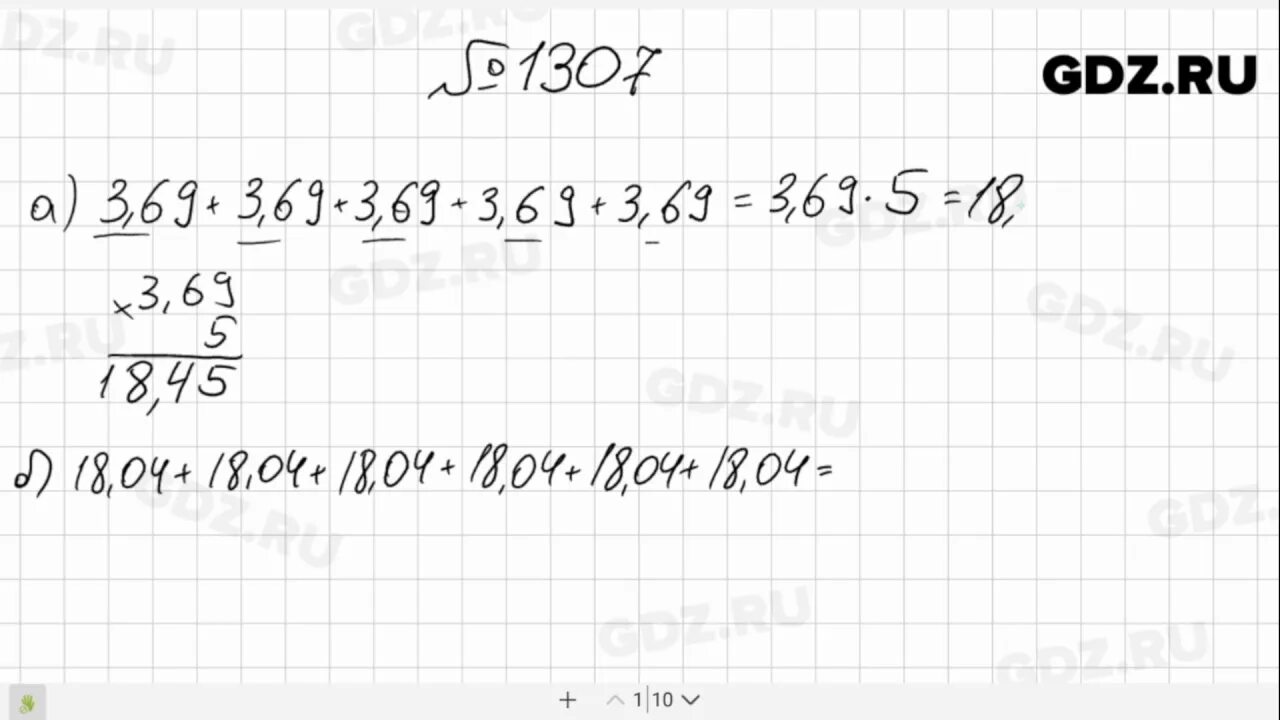 №1307
GDZ.RU
а) 3,69 + 3,69 + 3,69 + 3,69 + 3,69 = 3,69 · 5 = 18,
× 3,69
5
18,45
б) 18,04 + 18,04 + 18,04 + 18,04 + 18,04 + 18,04 =
GDZ.RU
GDZ.RU
GDZ.RU
GDZ.RU
GDZ.RU
GDZ.RU
GDZ.RU
GDZ.RU
GDZ.
GDZ.RU
GDZ.RU
1|10